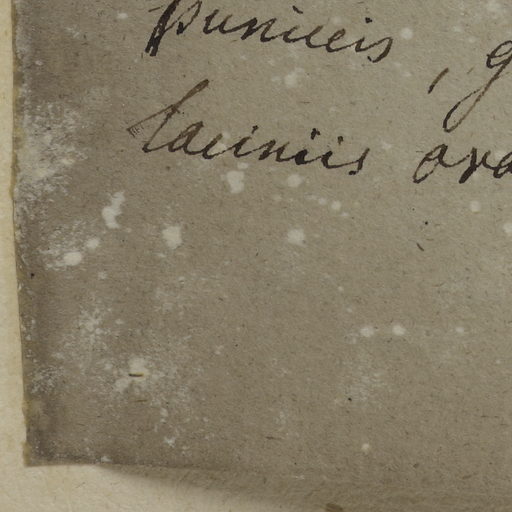 puniceis, g
laciniis ova